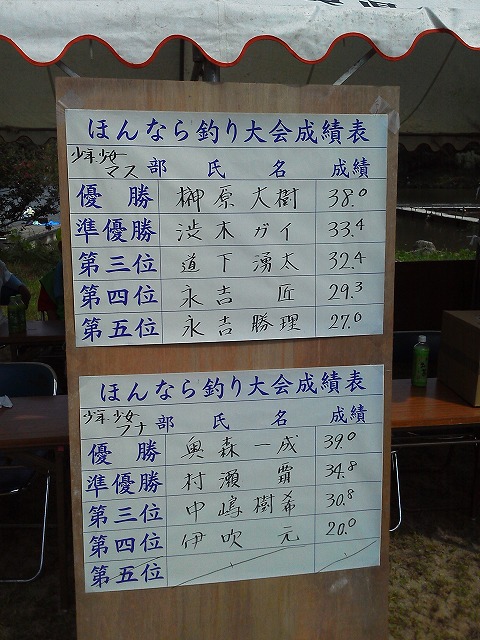 ほんなら釣り大会成績表
少年少女
マス部 氏名 成績
優勝 榊原大樹 38.0
準優勝 渋木ガイ 33.4
第三位 道下湧太 32.4
第四位 永吉匠 29.3
第五位 永吉勝理 27.0
ほんなら釣り大会成績表
少年少女
フナ部 氏名 成績
優勝 奥森一成 39.0
準優勝 村瀬覇 34.8
第三位 中嶋樹希 30.8
第四位 伊吹元 20.0
第五位